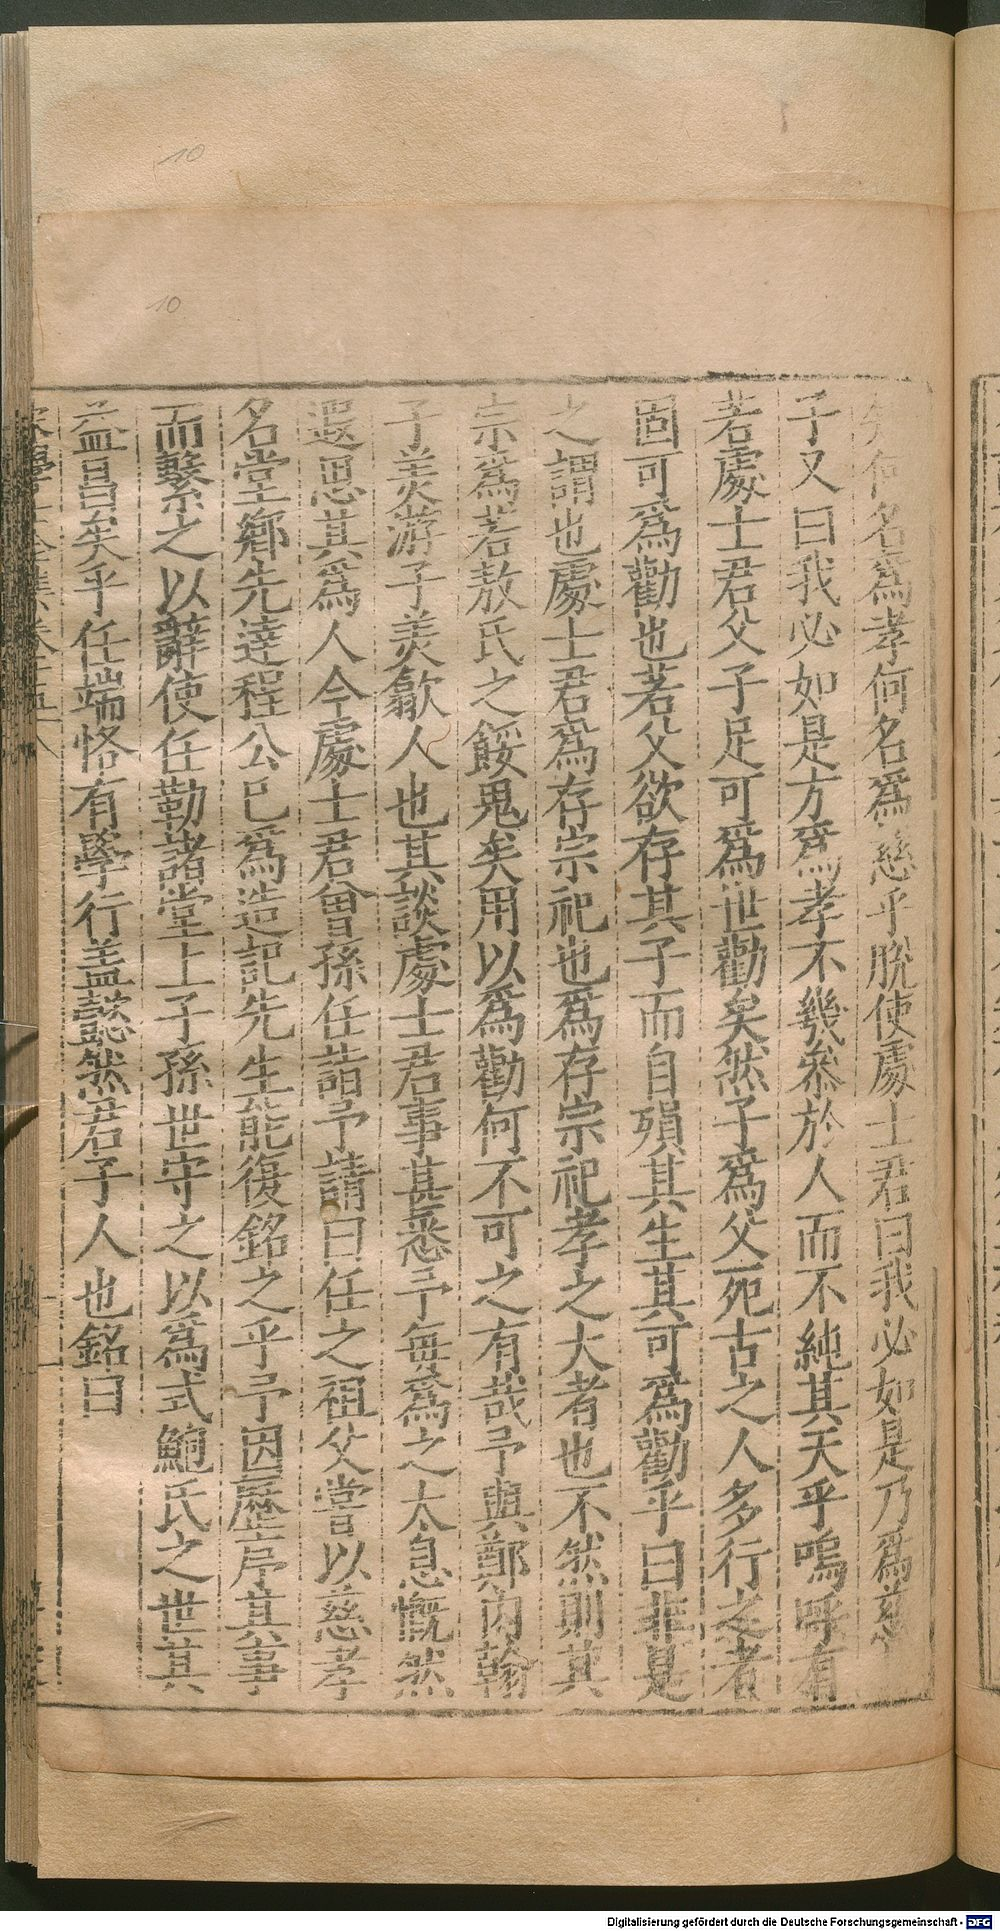 何名爲孝何名爲慈乎脫使處士君曰我必如是乃爲慈
子又曰我必如是方爲孝不幾叅於人而不純其天乎嗚呼有
若處士君父子足可爲世勸矣然子爲父死古之人多行之者
固可爲勸也若父欲存其子而自殞其生其可爲勸乎曰非是
之謂也處士君爲存宗祀也爲存宗祀孝之大者也不然則其
宗爲若敖氏之餒鬼矣用以爲勸何不可之有哉予與鄭內翰
子美游子美歙人也其談處士君事甚悉予每爲之太息慨然
遐思其爲人今處士君曾孫任詣予請曰任之祖父嘗以慈孝
名堂鄉先達程公已爲造記先生能復銘之乎予因歷序其事
而繫之以辭使任勒諸堂上子孫世守之以爲式鮑氏之世其
益昌矣乎任端恪有學行蓋懿然君子人也銘曰
10
10
Digitalisierung gefördert durch die Deutsche Forschungsgemeinschaft - DFG